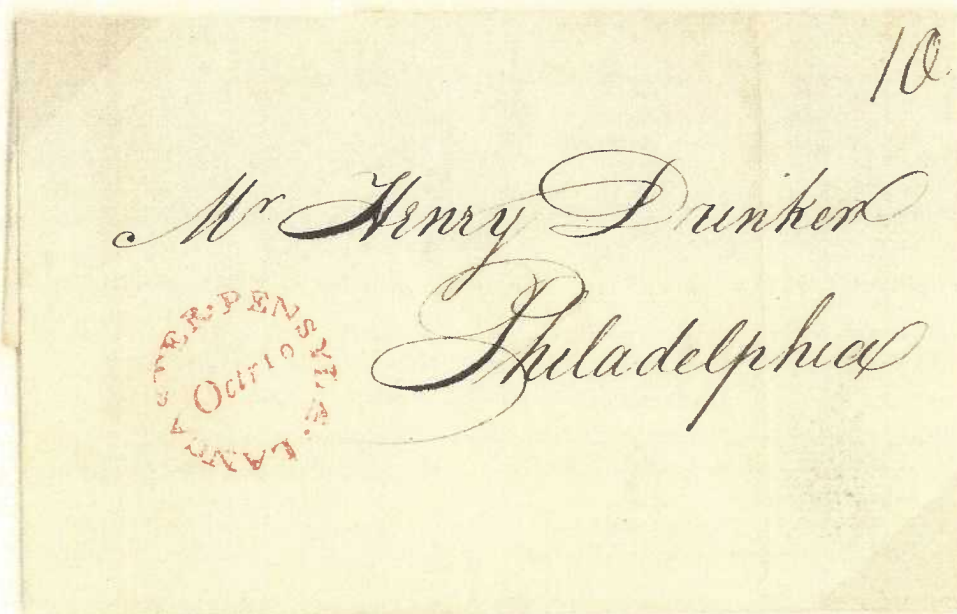 10.
Mr Henry Drinker
Philadelphia
LANCASTER·PENSYLA·
Octr 10